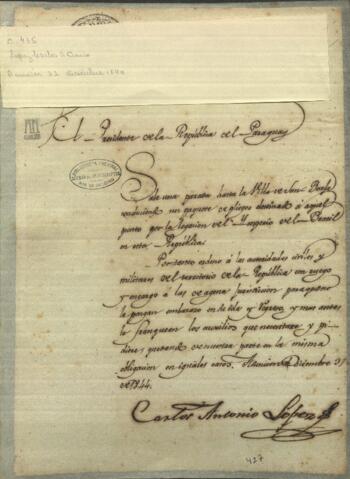 C. 436
Lopez, Carlos Antonio
Asunción 22 diciembre 1844
El Presidente de la República del Paraguay
Sale una posta hasta la Villa de San Borja
conduciendo un paquete de pliegos destinado á aquel
punto por la Legacion del Imperio del Brasil
en esta República.
Por tanto ordeno á las autoridades civiles y
militares del territorio de la República, y ruego
y encargo á las de agena jurisdiccion para que no
le pongan embarazo en la ida y regreso, y mas antes
le franqueen los auxilios que necesitare y pi-
diere, que en la misma
obligacion en iguales casos. Asuncion Diciembre
de 1844.
Carlos Antonio López
427